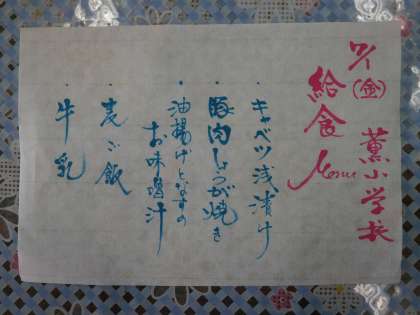 7/1(金) 薫小学校
給食 Menu
・キャベツ浅漬け
・豚肉しょうが焼き
・油揚げとなすの
お味噌汁
・麦ご飯
・牛乳